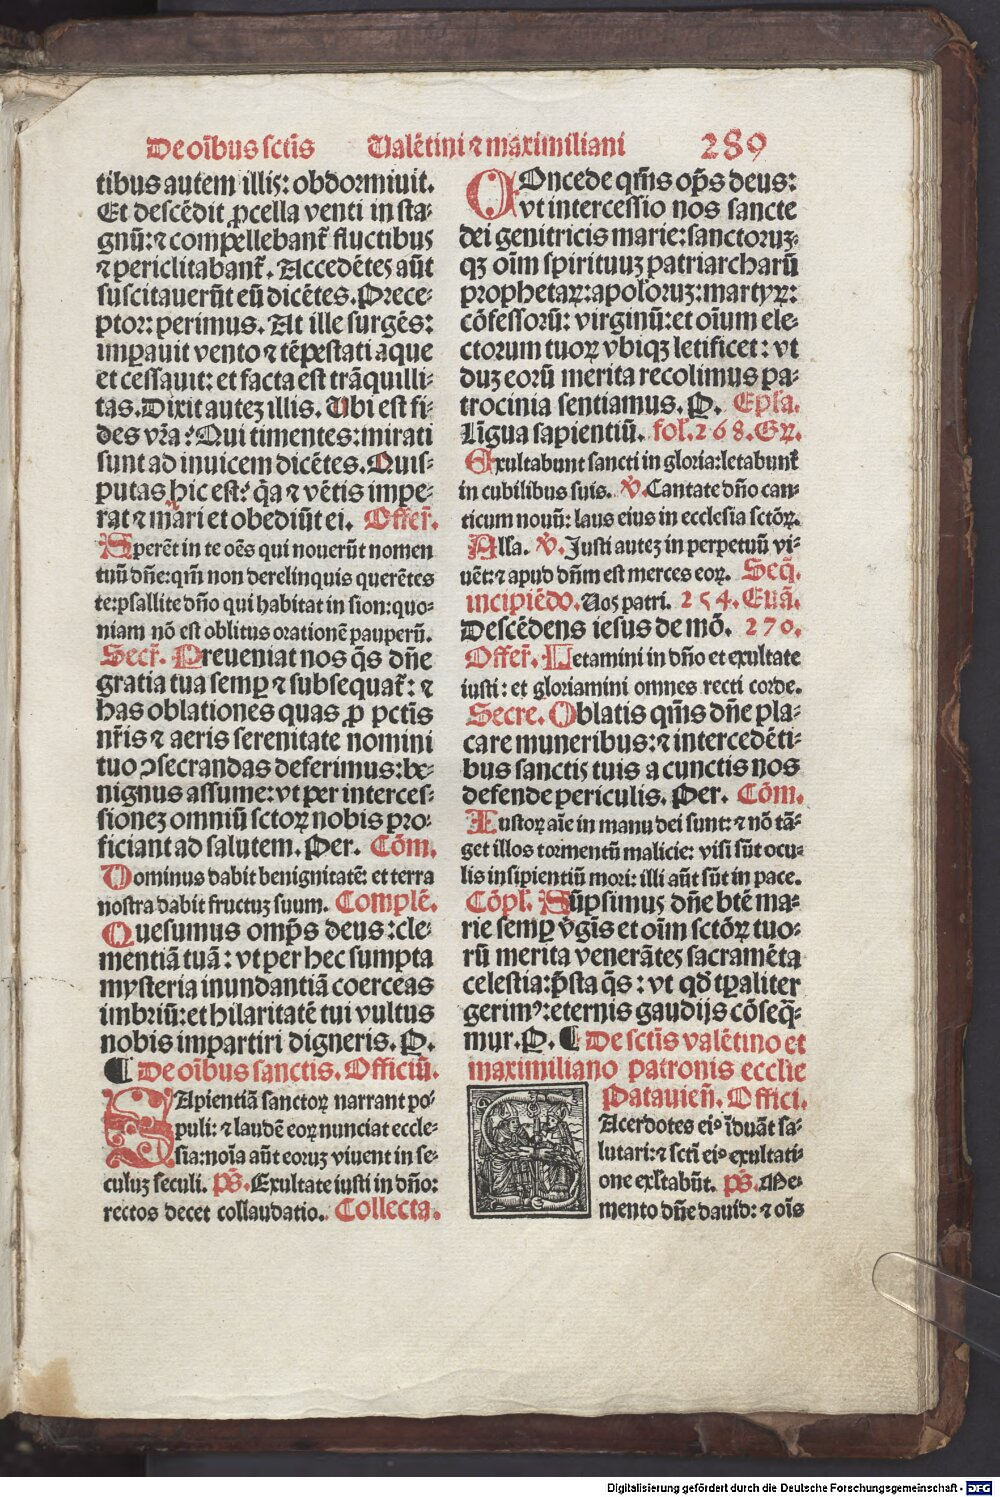 De oībus sctīs Ualētini ⁊ maximiliani 289
tibus autem illis: obdormiuit.
Et descēdit ꝓcella venti in sta-
gnū: ⁊ compellebant᷑ fluctibus
⁊ periclitabant᷑. Accedētes aūt
suscitauerūt eū dicētes. Prece-
ptor: perimus. At ille surgēs:
imꝑauit vento ⁊ tēpestati aque
et cessauit: et facta est trāquilli-
tas. Dixit autez illis. Ubi est fi-
des vr̄a? Qui timentes: mirati
sunt ad inuicem dicētes. Quis-
putas hic est? q̄a ⁊ vētis impe-
rat ⁊ mari et obediūt ei. Offer̄.
Sperēt in te oēs qui nouerūt nomen
tuū dn̄e: qm̄ non derelinquis querētes
te: psallite dn̄o qui habitat in sion: quo-
niam nō est oblitus orationē pauperū.
Secr̄. Preueniat nos q̄s dn̄e
gratia tua semꝑ ⁊ subsequat᷑: ⁊
has oblationes quas ꝓ pctīs
nr̄is ⁊ aeris serenitate nomini
tuo ꝯsecrandas deferimus: be-
nignus assume: vt per interces-
sionez omniū sctoꝝ nobis pro-
ficiant ad salutem. Per. Cōm.
Dominus dabit benignitatē: et terra
nostra dabit fructuz suum. Complē.
Quesumus omp̄s deus: cle-
mentiā tuā: vt per hec sumpta
mysteria inundantiā coerceas
imbriū: et hilaritatē tui vultus
nobis impartiri digneris. P.
¶ De oībus sanctis. Officiū.
SApientiā sanctoꝝ narrant po-
puli: ⁊ laudē eoꝝ nunciat eccle-
sia: noīa aūt eoruz viuent in se-
culuz seculi. p̄s. Exultate iusti in dn̄o:
rectos decet collaudatio. Collecta.
COncede qm̄s op̄s deus:
vt intercessio nos sancte
dei genitricis marie: sanctoruz-
qꝫ oīm spirituuz patriarcharū
prophetaꝝ: apl̄oruz: martyꝝ:
cōfessorū: virginū: et oīum ele-
ctorum tuoꝝ vbiqꝫ letificet: vt
duz eorū merita recolimus pa-
trocinia sentiamus. P. Epl̄a.
Līgua sapientiū. fol. 268. Gꝝ.
Exultabunt sancti in gloria: letabunt᷑
in cubilibus suis. ℣. Cantate dn̄o can-
ticum nouū: laus eius in ecclesia sctōꝝ.
Alla. ℣. Justi autez in perpetuū vi-
uēt: ⁊ apud dn̄m est merces eoꝝ. Seq̄.
incipiēdo. Uos patri. 254. Euā.
Descēdens iesus de mō. 270.
Offer̄. Letamini in dn̄o et exultate
iusti: et gloriamini omnes recti corde.
Secre. Oblatis qm̄s dn̄e pla-
care muneribus: ⁊ intercedēti-
bus sanctis tuis a cunctis nos
defende periculis. Per. Cōm.
Iustoꝝ aīe in manu dei sunt: ⁊ nō tā-
get illos tormentū malicie: visi sūt ocu-
lis insipientiū mori: illi aūt sūt in pace.
Cōpl̄. Sūpsimus dn̄e btē ma-
rie semꝑ v̄gīs et oīm sctōꝝ tuo-
rū merita venerātes sacramēta
celestia: p̄sta q̄s: vt qd̄ tꝑaliter
gerimꝰ: eternis gaudijs cōseq̄-
mur. P. ¶ De sctīs valētino et
maximiliano patronis eccl̄ie
Patauieñ. Offici.
Acerdotes eiꝰ īduāt sa-
lutari: ⁊ sctī eiꝰ exultati-
one exl̄tabūt. p̄s. Me-
mento dn̄e dauid: ⁊ oīs
Digitalisierung gefördert durch die Deutsche Forschungsgemeinschaft - DFG